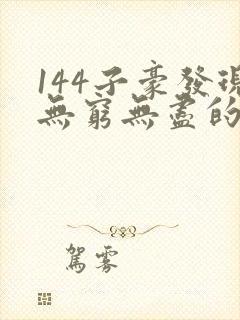 144子豪發現
無窮無盡的
駕霧